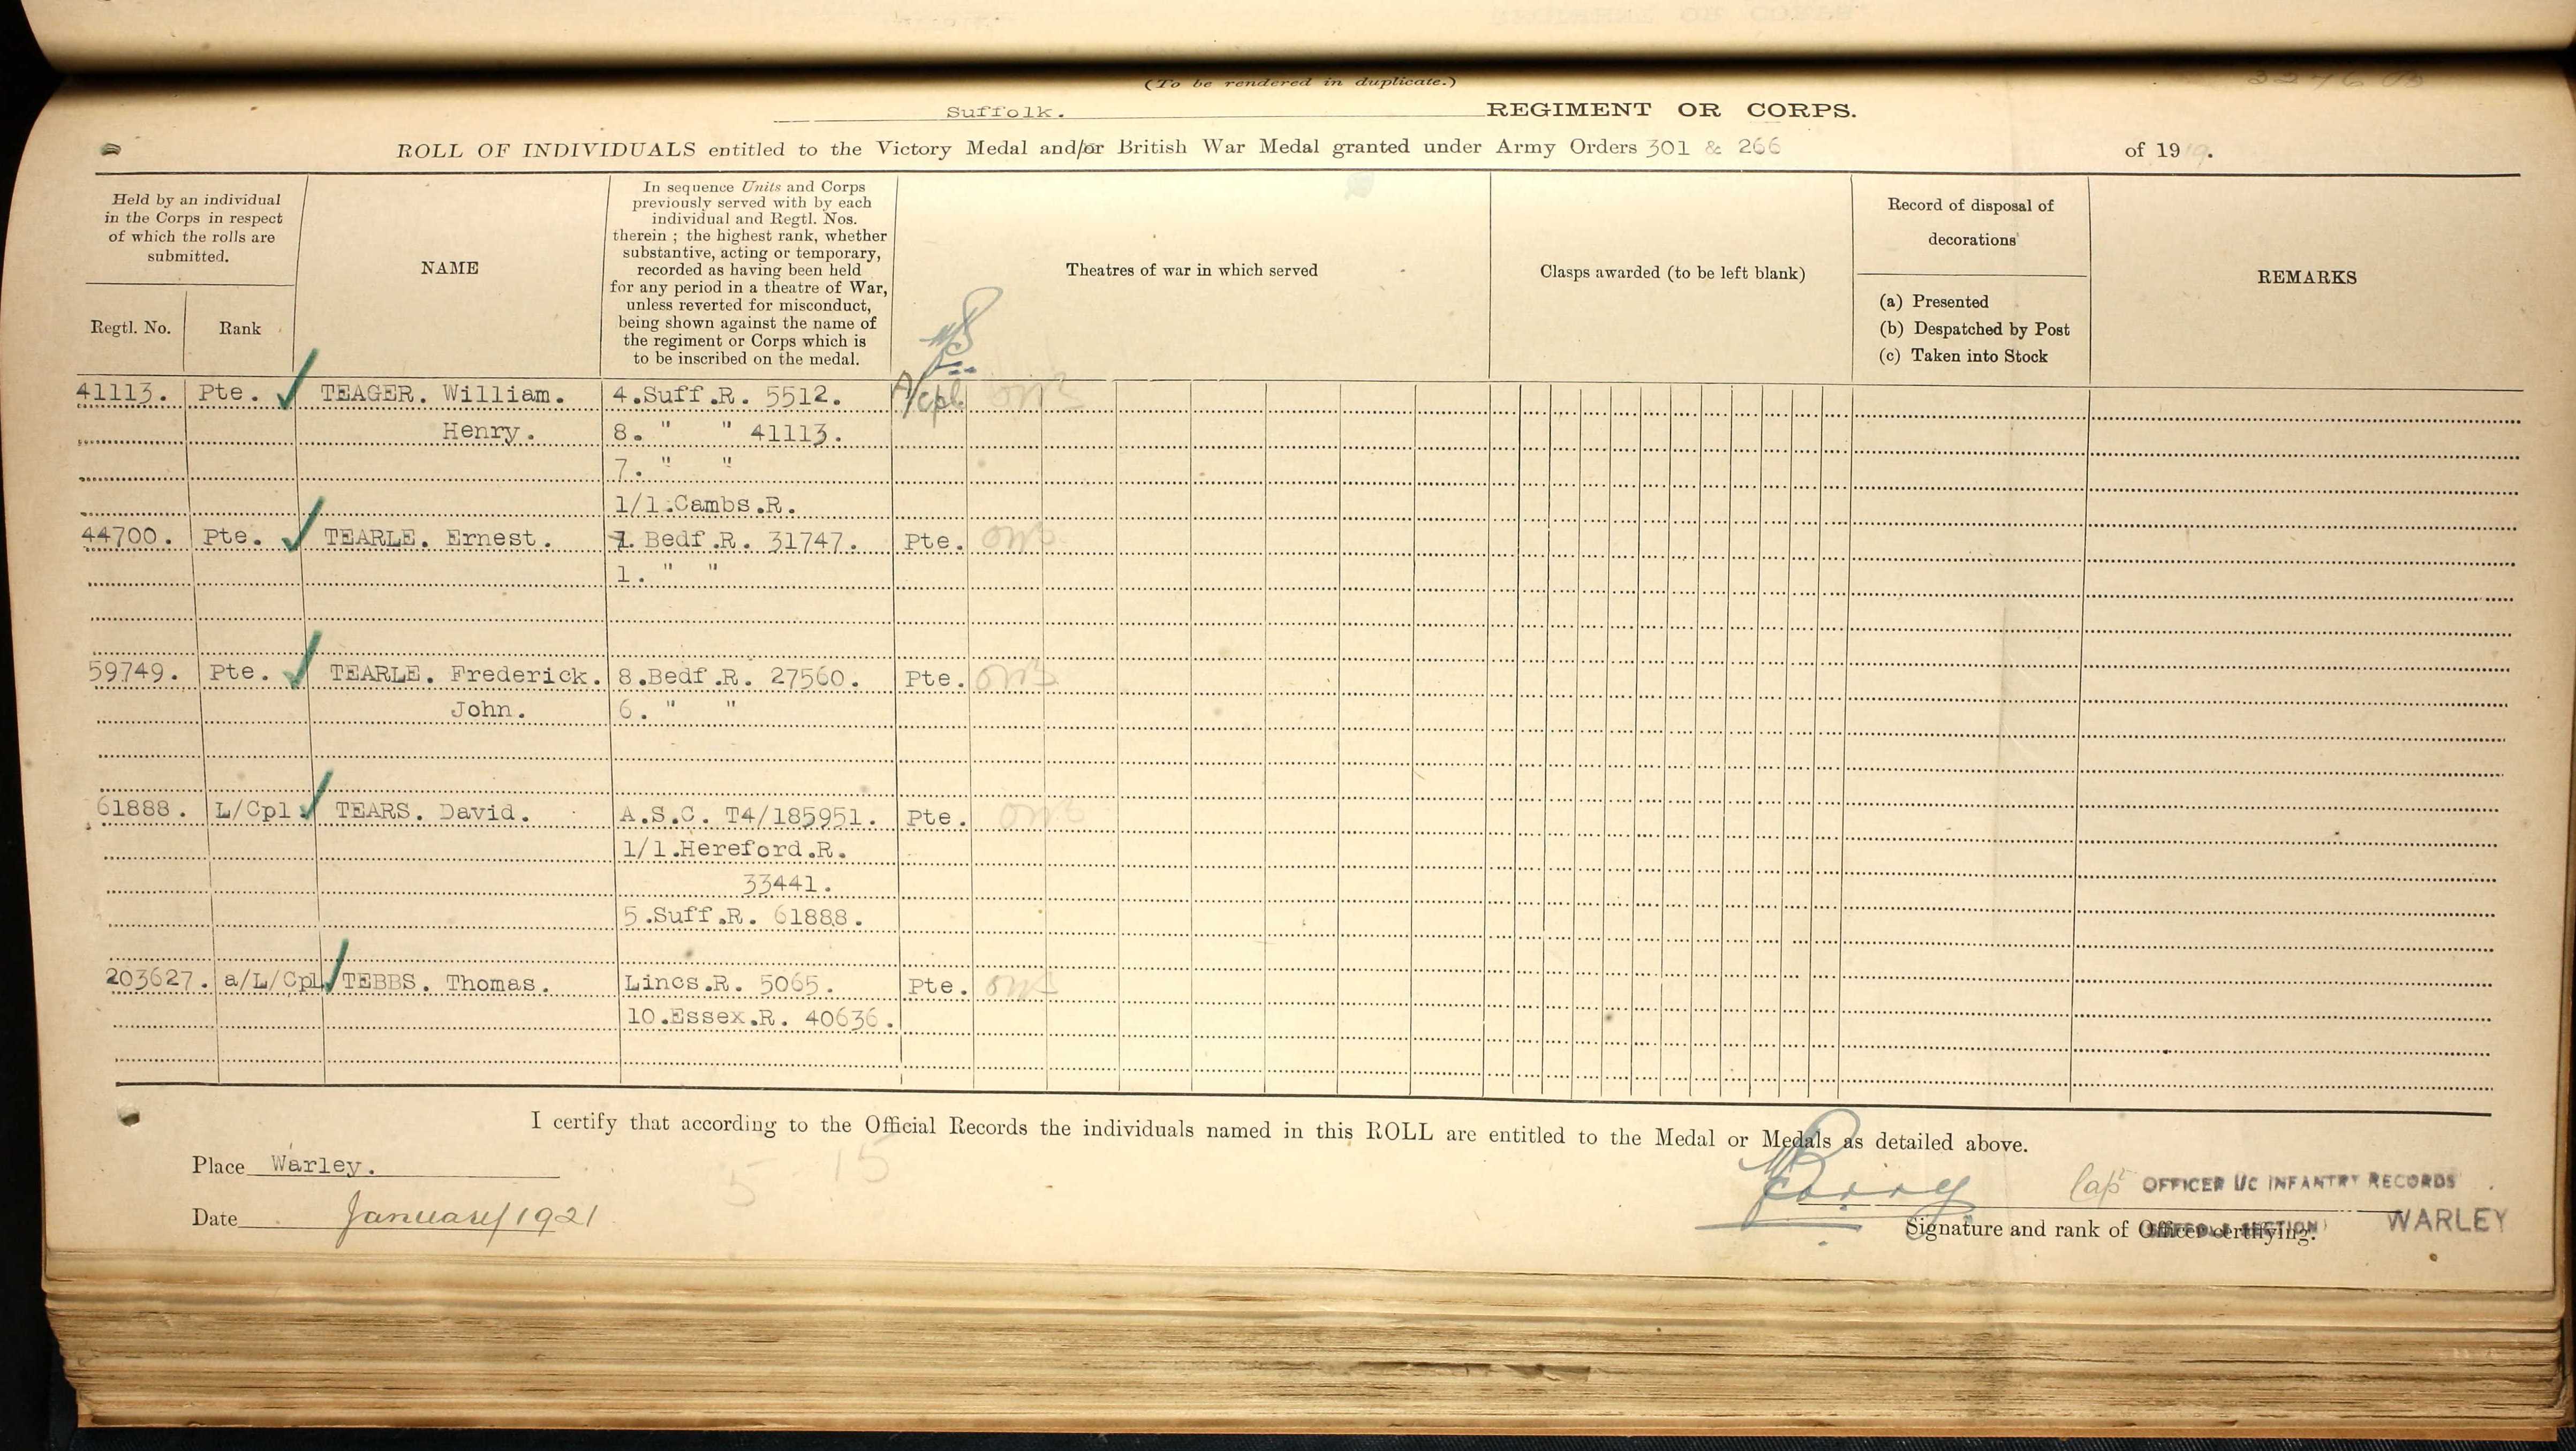 (To be rendered in duplicate.)
Suffolk. REGIMENT OR CORPS.
ROLL OF INDIVIDUALS entitled to the Victory Medal and/or British War Medal granted under Army Orders 301 & 266 of 1919.
Held by an individual
in the Corps in respect
of which the rolls are
submitted.
Regtl. No.
Rank
NAME
In sequence Units and Corps
previously served with by each
individual and Regtl. Nos.
therein ; the highest rank, whether
substantive, acting or temporary,
recorded as having been held
for any period in a theatre of War,
unless reverted for misconduct,
being shown against the name of
the regiment or Corps which is
to be inscribed on the medal.
Theatres of war in which served
Clasps awarded (to be left blank)
Record of disposal of
decorations
(a) Presented
(b) Despatched by Post
(c) Taken into Stock
REMARKS
41113. Pte. TEAGER. William. 4.Suff.R. 5512. A/cpl
Henry. 8. " " 41113.
7. " "
1/1.Cambs.R.
44700. Pte. TEARLE. Ernest. 7. Bedf.R. 31747. Pte.
1. " "
59749. Pte. TEARLE. Frederick. 8.Bedf.R. 27560. Pte.
John. 6. " "
61888. L/Cpl. TEARS. David. A.S.C. T4/185951. Pte.
1/1.Hereford.R.
33441.
5.Suff.R. 61888.
203627. a/L/Cpl. TEBBS. Thomas. Lincs.R. 5065. Pte.
10.Essex.R. 40636.
I certify that according to the Official Records the individuals named in this ROLL are entitled to the Medal or Medals as detailed above.
Place Warley.
5 15
Capt OFFICER I/C INFANTRY RECORDS
Date January 1921
Signature and rank of Officer certifying. WARLEY